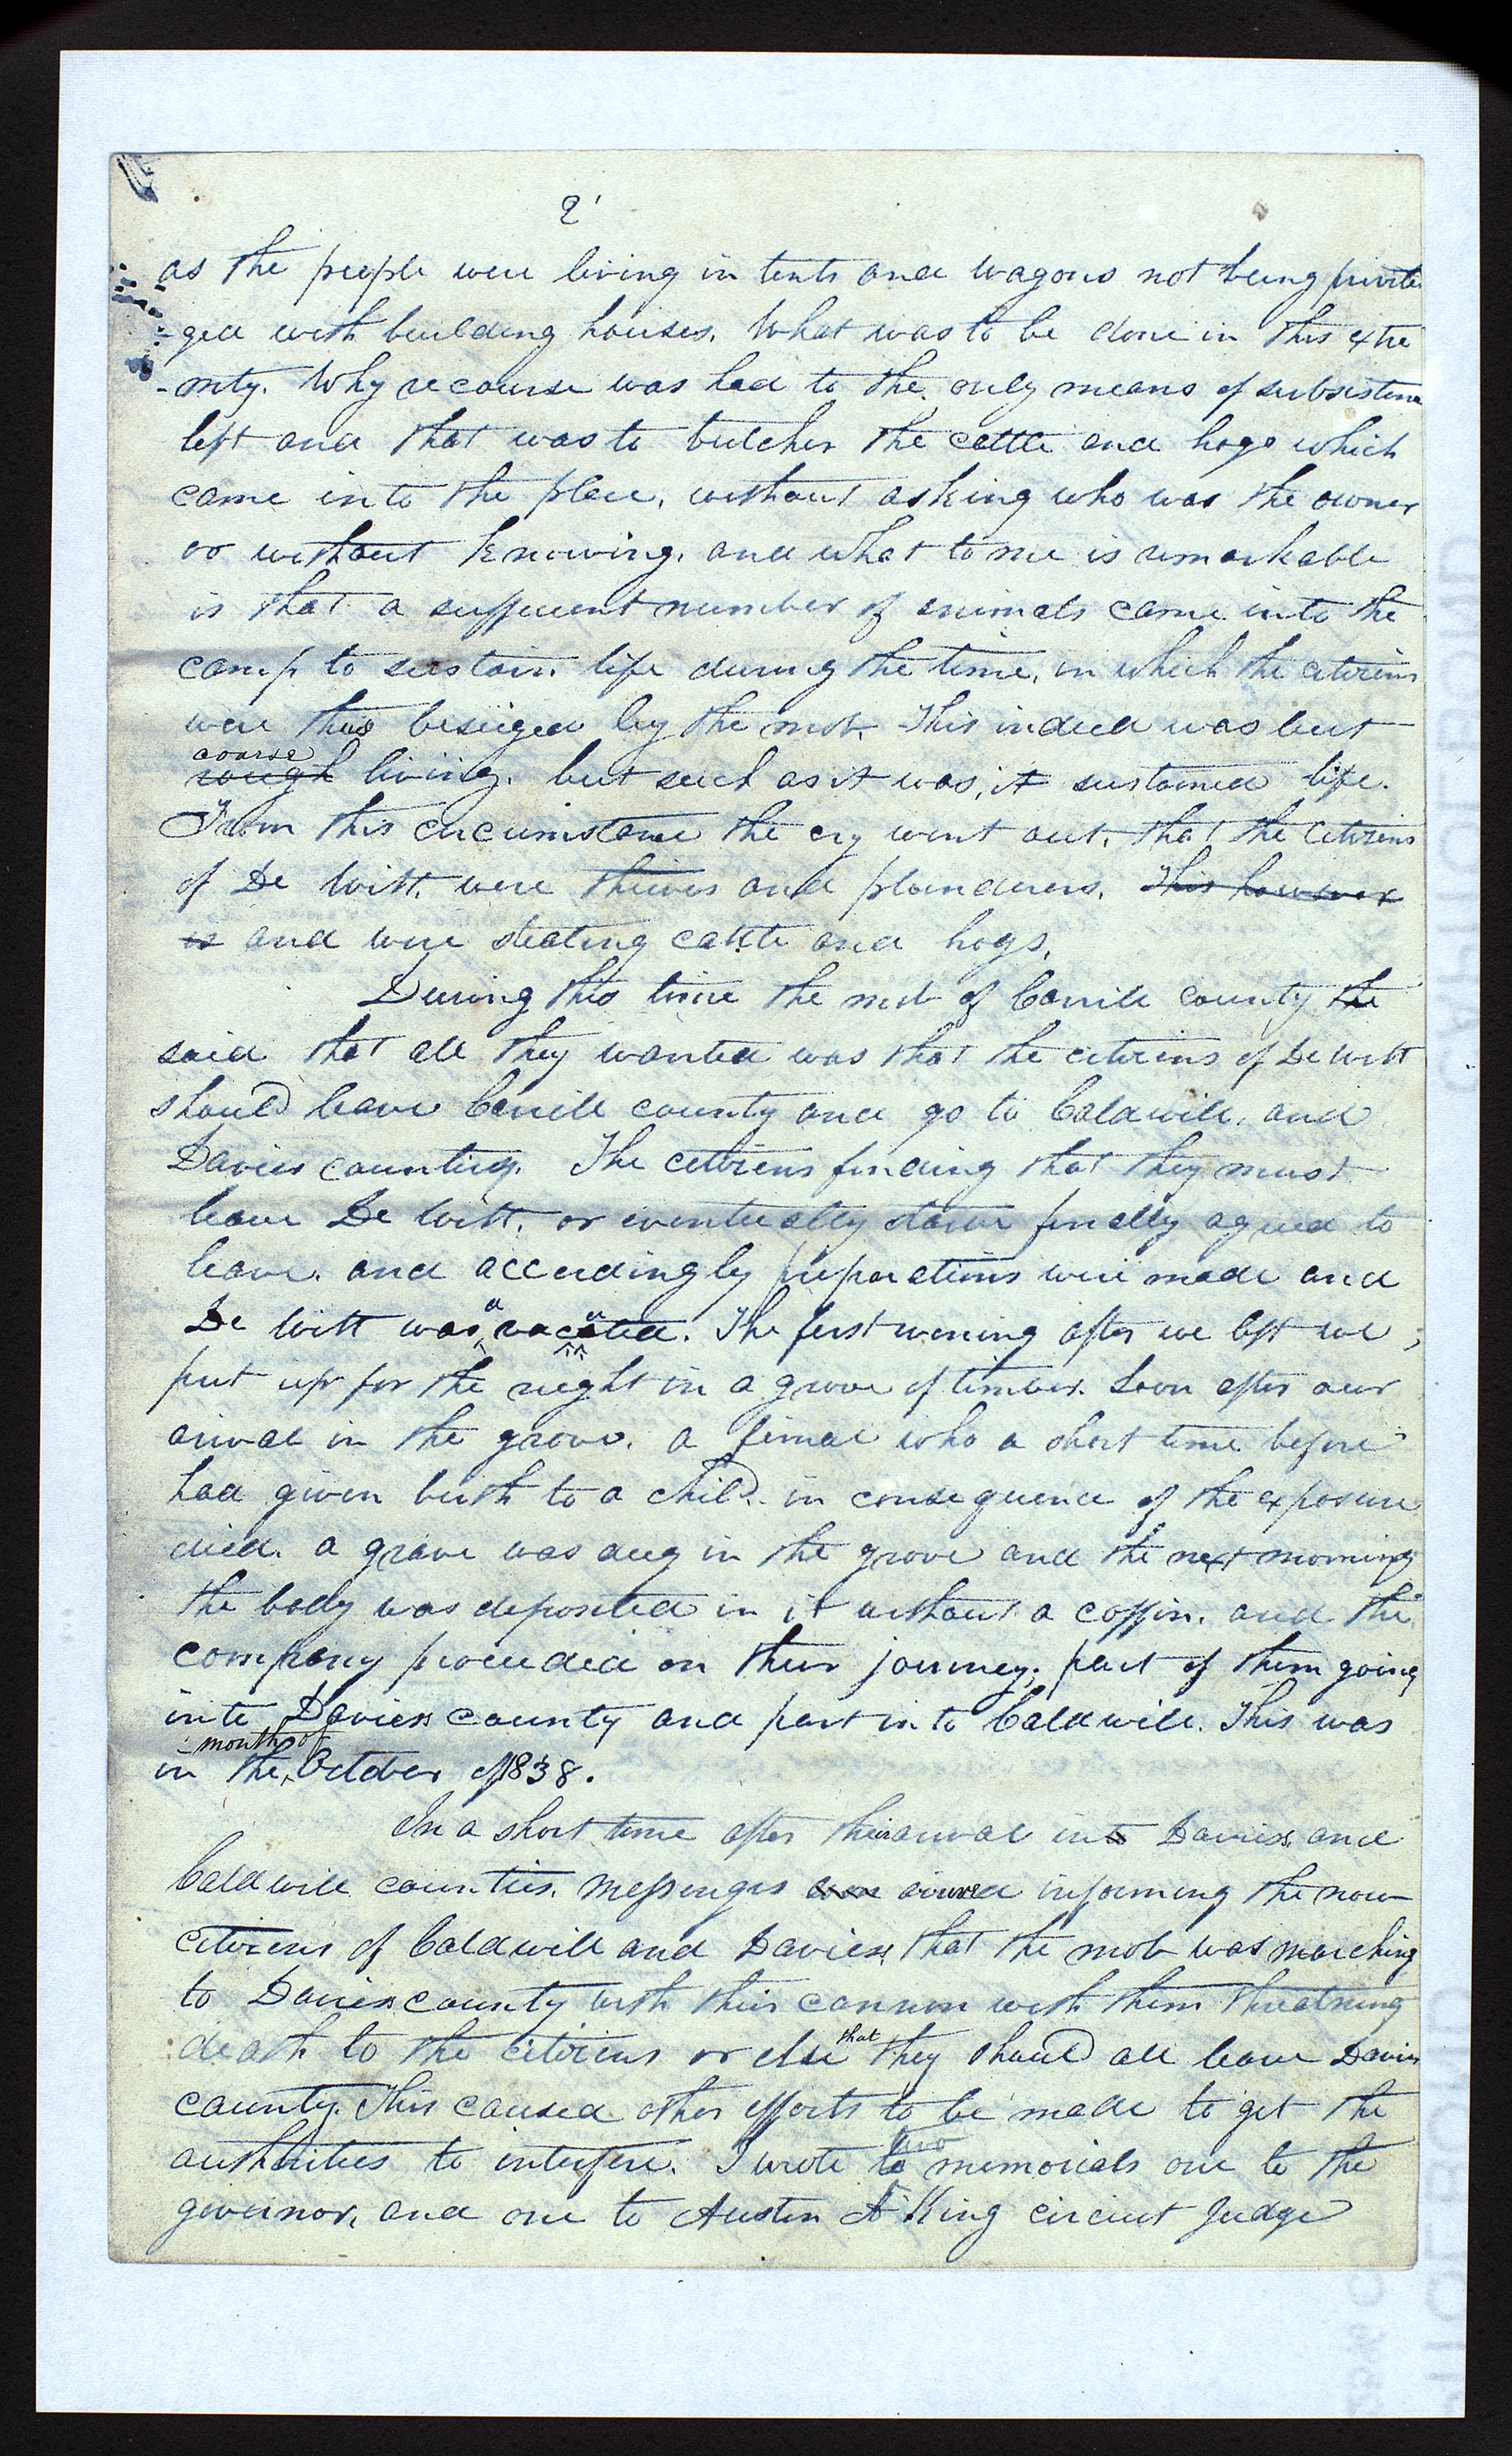 2
as the people were living in tents and wagons not being privile
-ged with building houses. What was to be done in this extre
-mity. Why recourse was had to the only means of subsistence
left and that was to butcher the cattle and hogs which
came into the place, without asking who was the owner
or without knowing, and what to me is remarkable
is that a sufficient number of animals came into the
camp to sustain life during the time, in which the citizens
were thus beseiged by the mob. This indeed was but
coarse
rough living. but such as it was, it sustained life.
From this circumstance the cry went out, that the citizens
of De Witt, were thieves and plunderers. This however
is and were steating cattle and hogs.
During this time the mob of Carrill county the
said that all they wanted was that the citizens of De Witt
should leave Carrill county and go to Caldwill, and
Daviess counties. The citizens finding that they must
leave De Witt, or eventually starve finally agreed to
leave. and accordingly preparations were made and
De Witt was vacated. The first evening after we left we
put up for the night in a grove of timber. Soon after our
arival in the grove, a femal who a short time before
had given birth to a child. in consequence of the exposure
died. a grave was dug in the grove and the next morning
the body was deposited in it without a coffin. and the
company proceeded on their journey; part of them going
into Daviess county and part into Caldwill. This was
month of
in the October of 1838.
In a short time after their arival into Daviess and
Caldwill counties, messengers arived informing the now
citizens of Caldwill and Daviess, that the mob was marching
to Daviess county with their cannon with them threatning
that
death to the citizens or else they should all leave Daviess
county. This caused other efforts to be made to get the
two
authorities to interfere. I wrote to memorials one to the
governor, and one to Austen A King circiut Judge